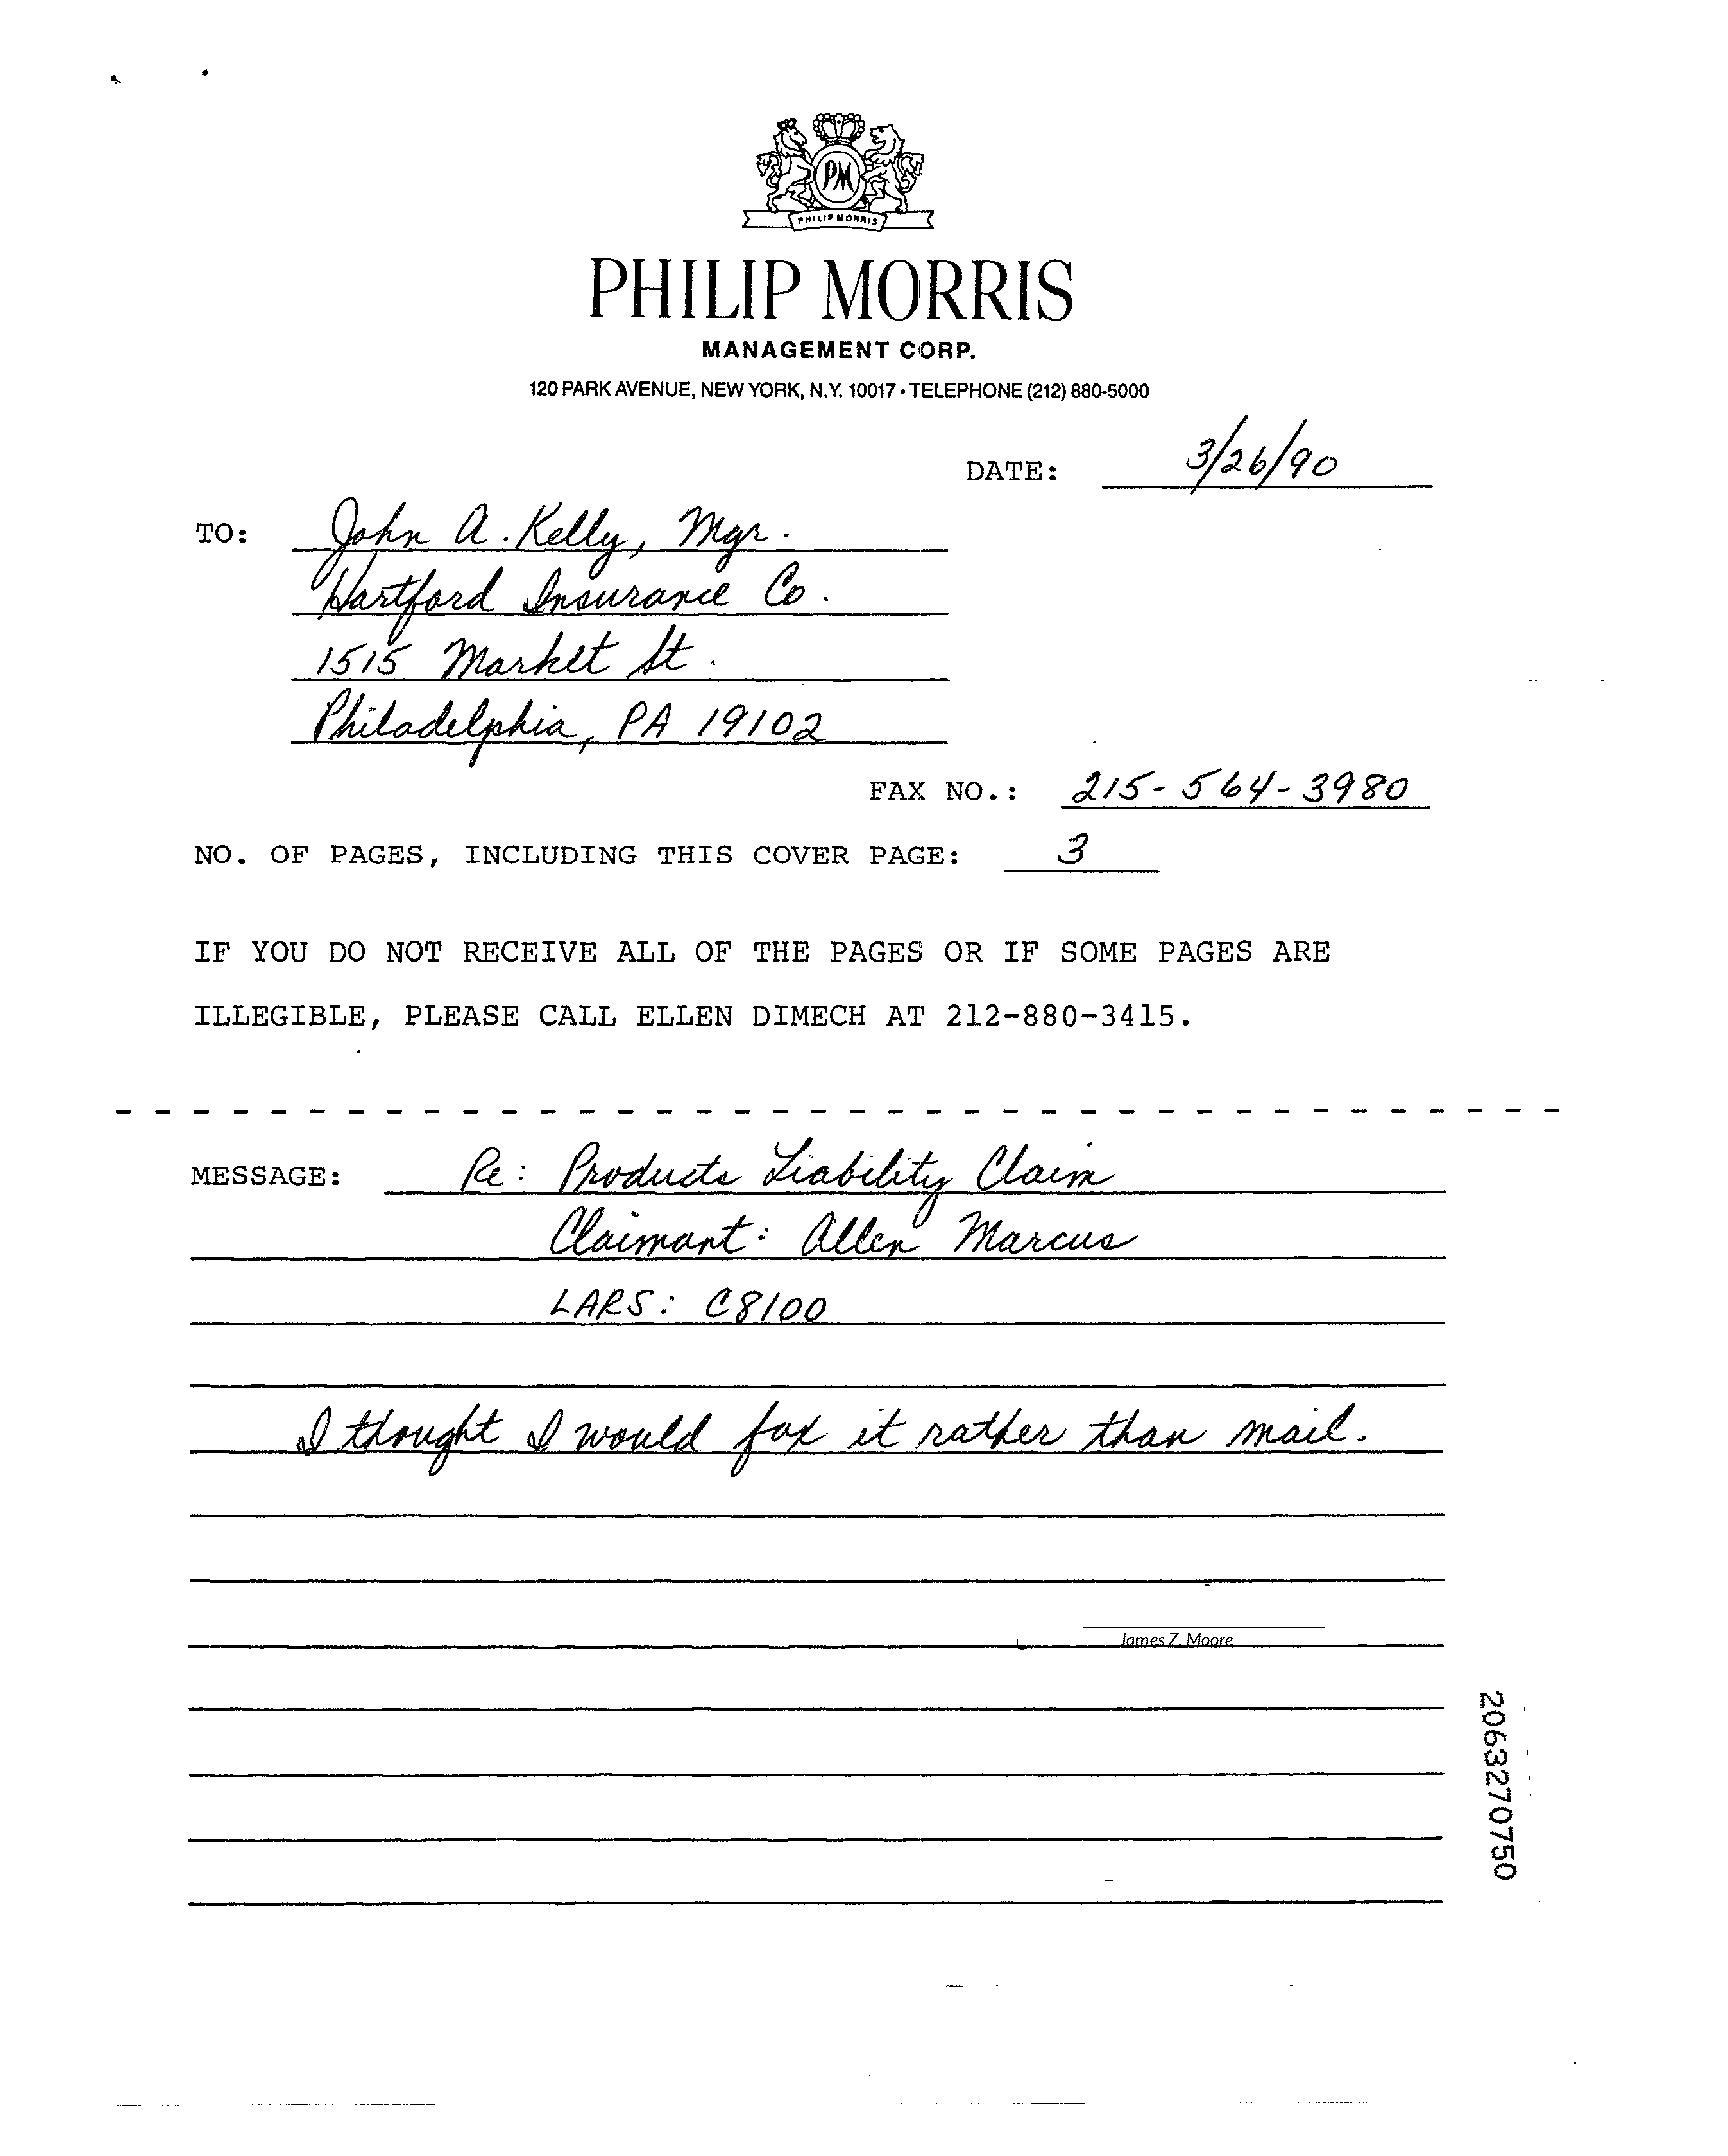 PM
PHILIP MORRIS
PHILIP MORRIS
MANAGEMENT CORP.
120 PARK AVENUE, NEW YORK, N.Y. 10017 • TELEPHONE (212) 880-5000
DATE: 3/26/90
TO: John A. Kelly, Mgr.
Hartford Insurance Co.
1515 Market St.
Philadelphia, PA 19102
FAX NO.: 215-564-3980
NO. OF PAGES, INCLUDING THIS COVER PAGE: 3
IF YOU DO NOT RECEIVE ALL OF THE PAGES OR IF SOME PAGES ARE
ILLEGIBLE, PLEASE CALL ELLEN DIMECH AT 212-880-3415.
MESSAGE: Re: Products Liability Claim
Claimant: Allen Marcus
LARS: C8100
I thought I would fax it rather than mail.
James Z. Moore
2063270750